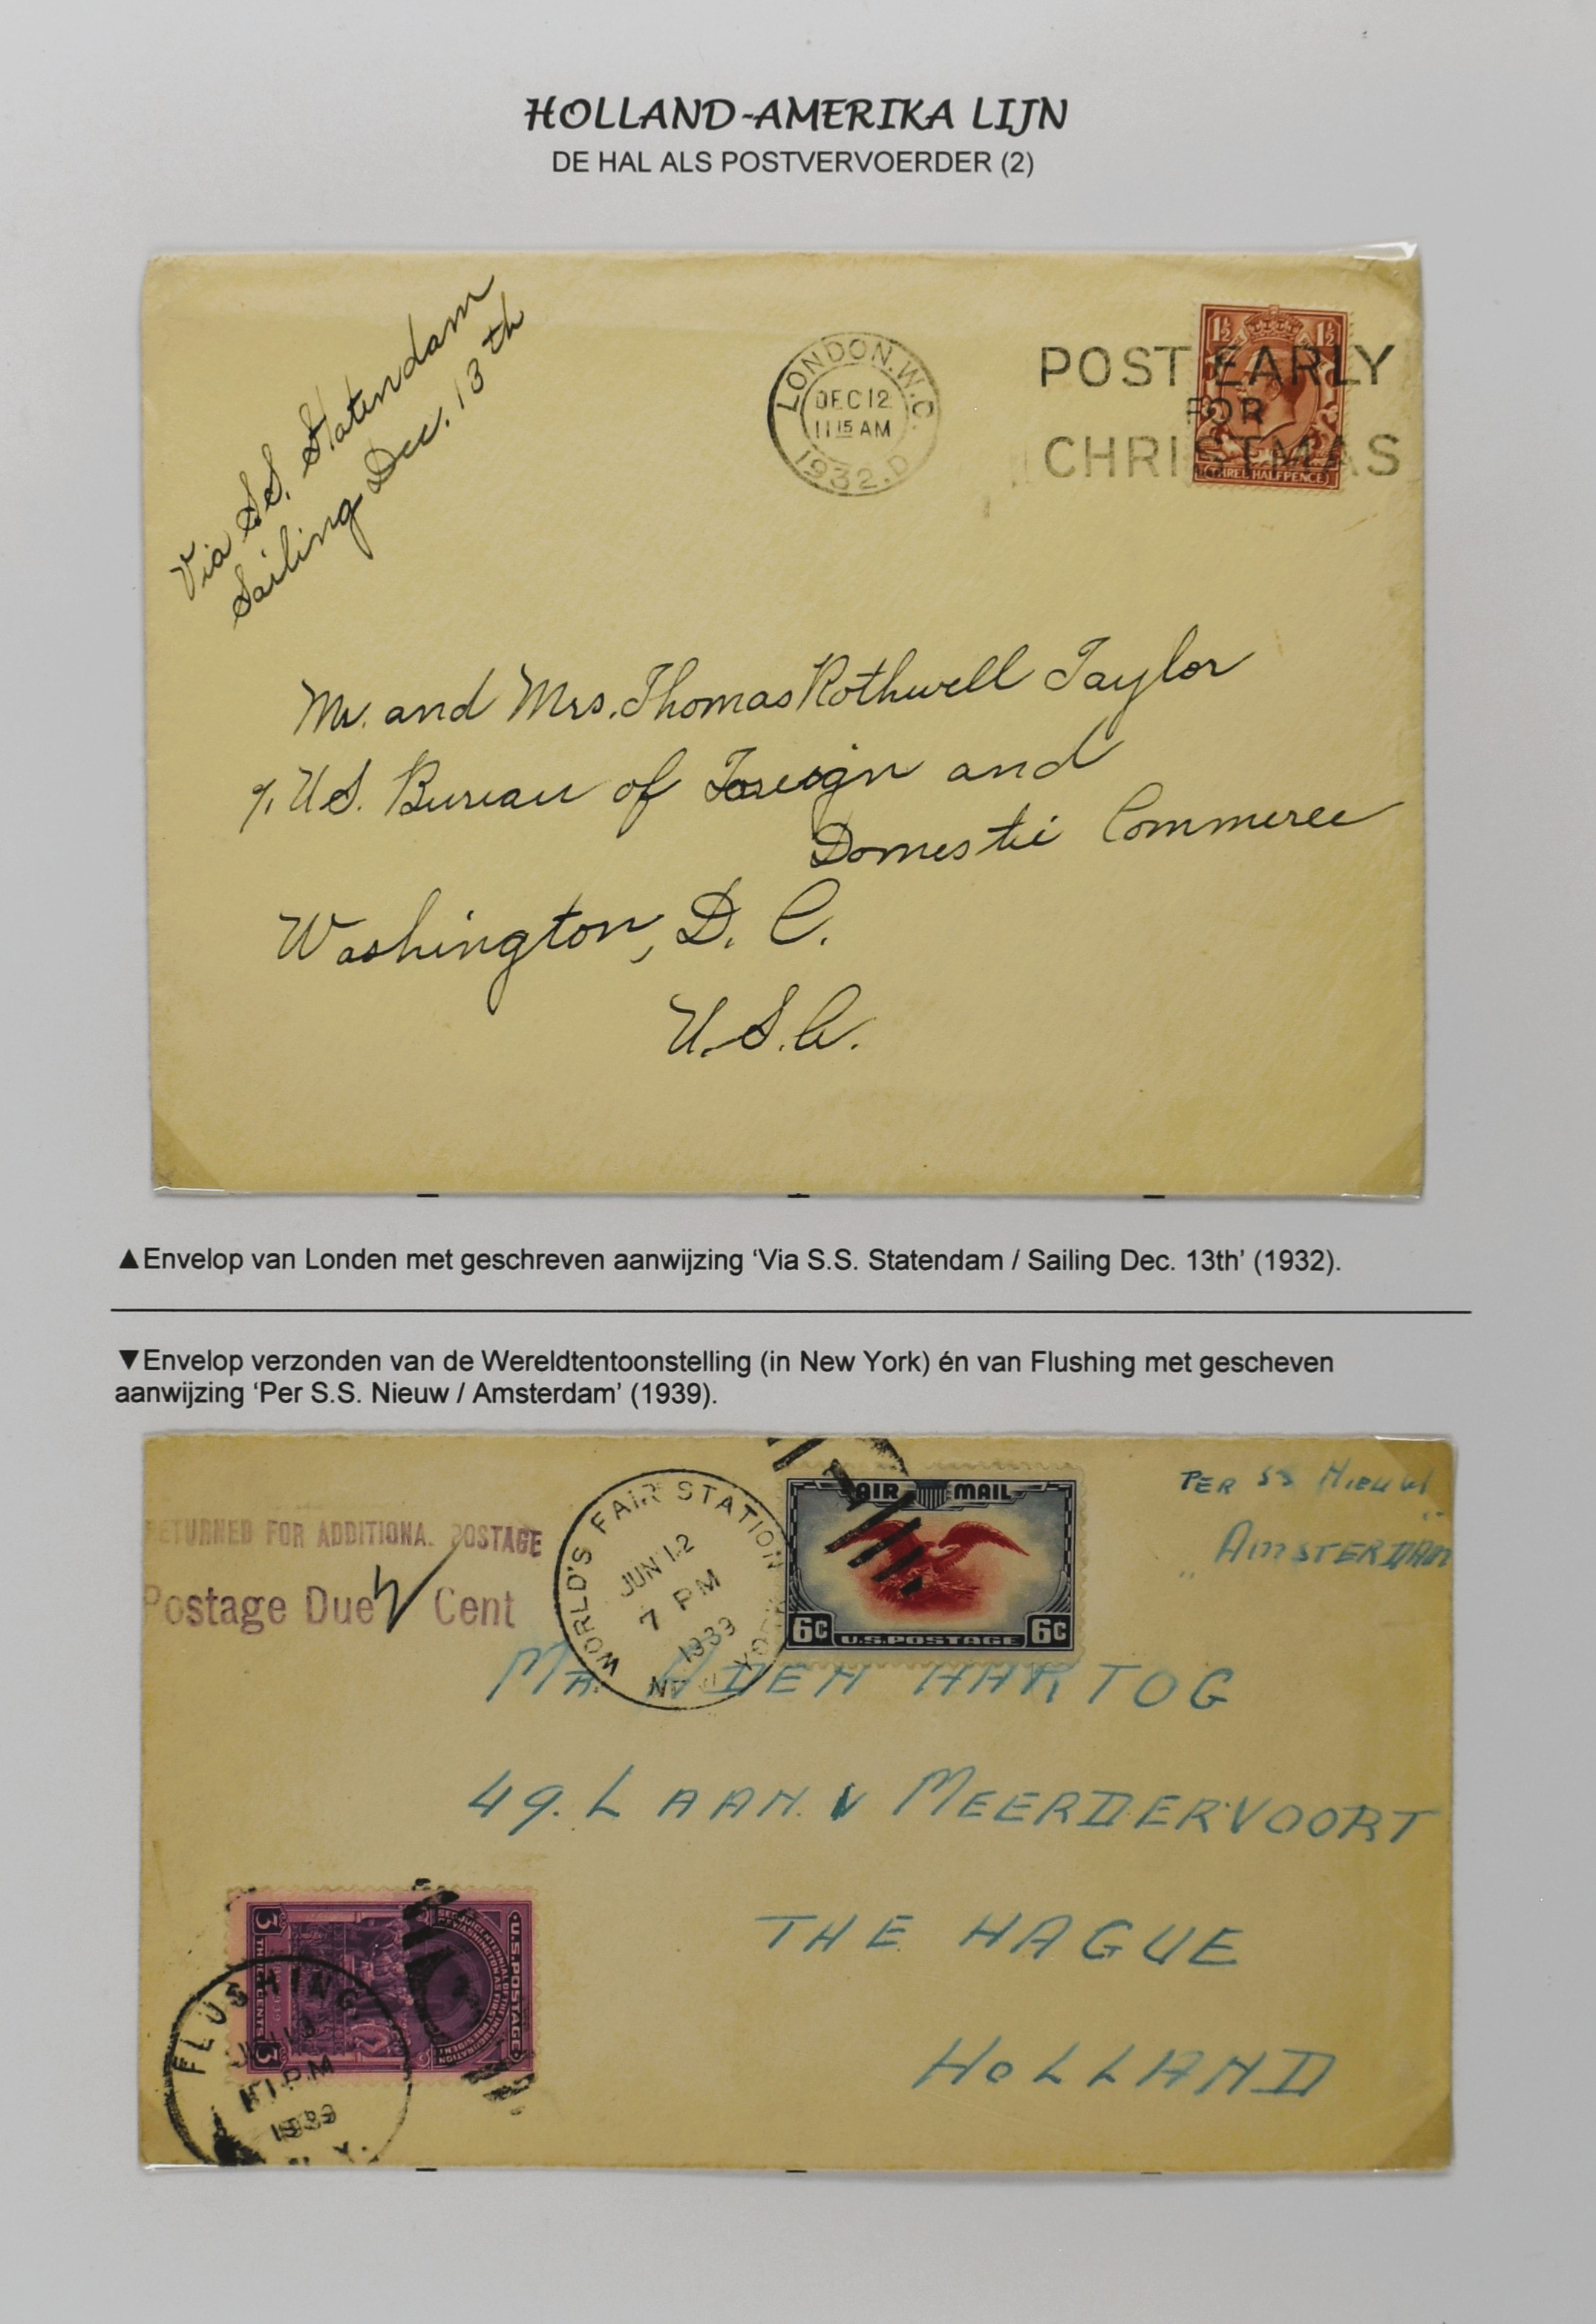 HOLLAND-AMERIKA LIJN
DE HAL ALS POSTVERVOERDER (2)
Via S.S. Statendam
Sailing Dec. 13th
LONDON.W.C.
DEC 12
11 15 AM
1932.D
POST EARLY
FOR
CHRISTMAS
1½ 1½
THREE HALFPENCE
Mr. and Mrs. Thomas Rothwell Taylor
%. U.S. Bureau of Foreign and
Domestic Commerce
Washington, D. C.
U.S.A.
▲Envelop van Londen met geschreven aanwijzing ‘Via S.S. Statendam / Sailing Dec. 13th’ (1932).
▼Envelop verzonden van de Wereldtentoonstelling (in New York) én van Flushing met gescheven
aanwijzing ‘Per S.S. Nieuw / Amsterdam’ (1939).
RETURNED FOR ADDITIONA. POSTAGE
Postage Due Cent
WORLD'S FAIR STATION
JUN 12
7 PM
1939
NEW YORK
AIR MAIL
6C U.S.POSTAGE 6C
PER SS NIEUW
AMSTERDAM
MR. DEN HARTOG
49. LAAN. V MEERDERVOORT
THE HAGUE
HOLLAND
U.S.POSTAGE
SESQUICENTENNIAL OF THE INAUGURATION
OF WASHINGTON AS FIRST PRESIDENT
3 THREE CENTS 3
FLUSHING
PM
1939
N.Y.